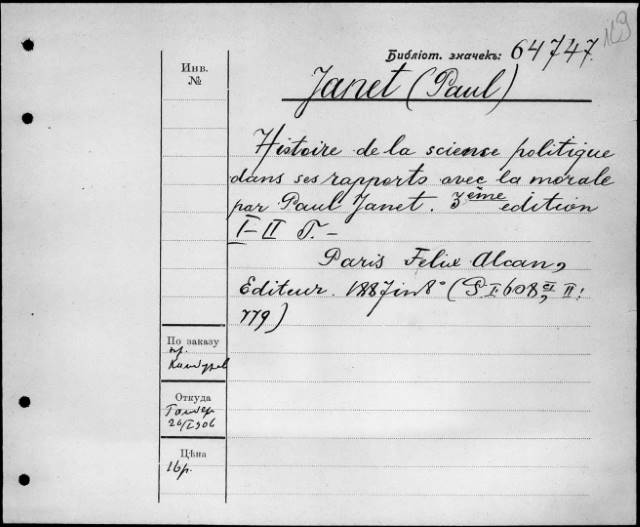 Библіот. значекъ: 64747.
Janet (Paul)
Инв.
№
Histoire de la science politique
dans ses rapports avec la morale
par Paul Janet. 3ème édition
I-II T. –
Paris Felix Alcan,
Editeur. 1887 in 8° (P. I: 608; II:
779)
По заказу
пр.
Откуда
26/I 906
Цѣна
16 р.